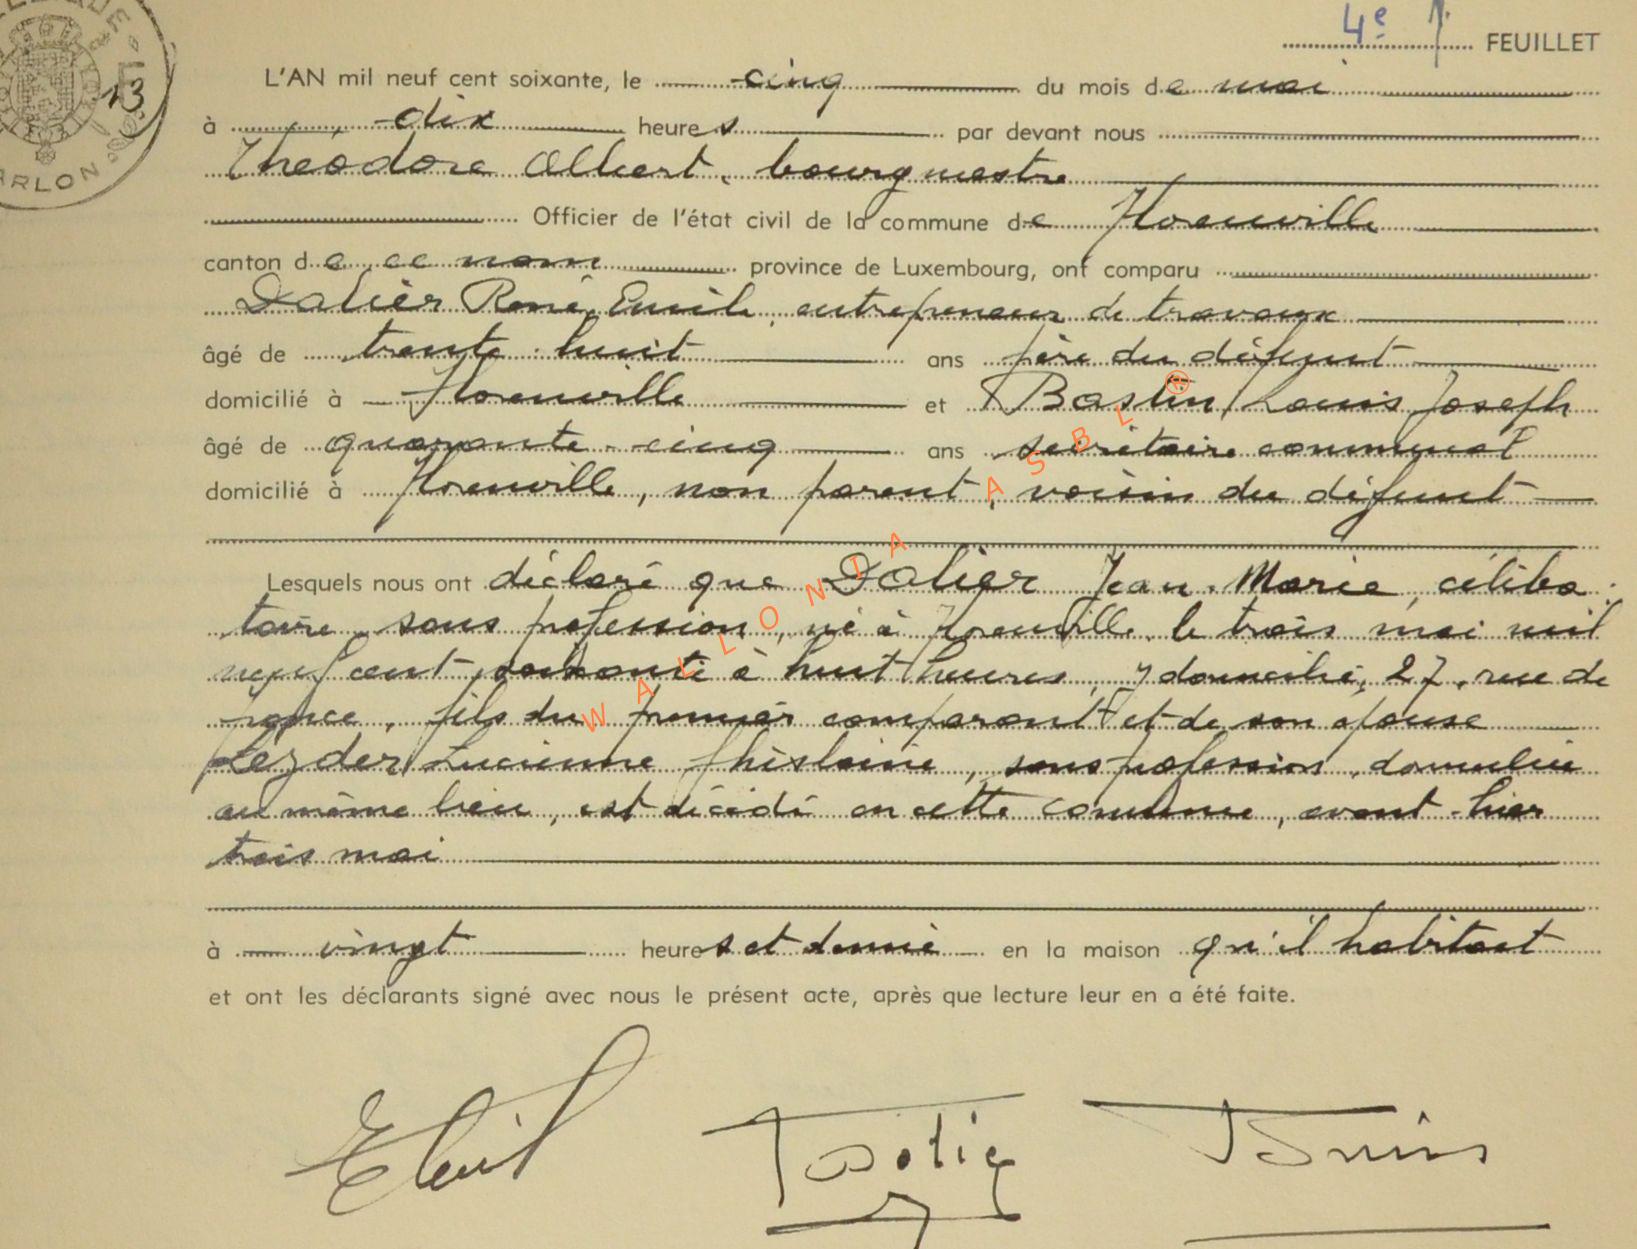 4e FEUILLET
13
ARLON
L'AN mil neuf cent soixante, le cinq du mois de mai
à dix heures par devant nous
Théodore Albert, bourgmestre
Officier de l'état civil de la commune de Florenville
canton de ce nom province de Luxembourg, ont comparu
Dalier René Emile, entrepreneur de travaux
âgé de trente-huit ans père du défunt
domicilié à Florenville et Bastin Louis Joseph
âgé de quarante-cinq ans secrétaire communal
domicilié à Florenville, non parent, voisin du défunt
Lesquels nous ont déclaré que Dalier Jean-Marie, céliba-
taire, sans profession, né à Florenville, le trois mai mil
neuf cent soixante à huit heures, y domicilié, 27, rue de
France, fils du premier comparant et de son épouse
Lucienne Ghislaine, sans profession, domiciliée
au même lieu, est décédé en cette commune, avant-hier
trois mai
à vingt heures et demie en la maison qu'il habitait
et ont les déclarants signé avec nous le présent acte, après que lecture leur en a été faite.
WALLONIA ASBL ®